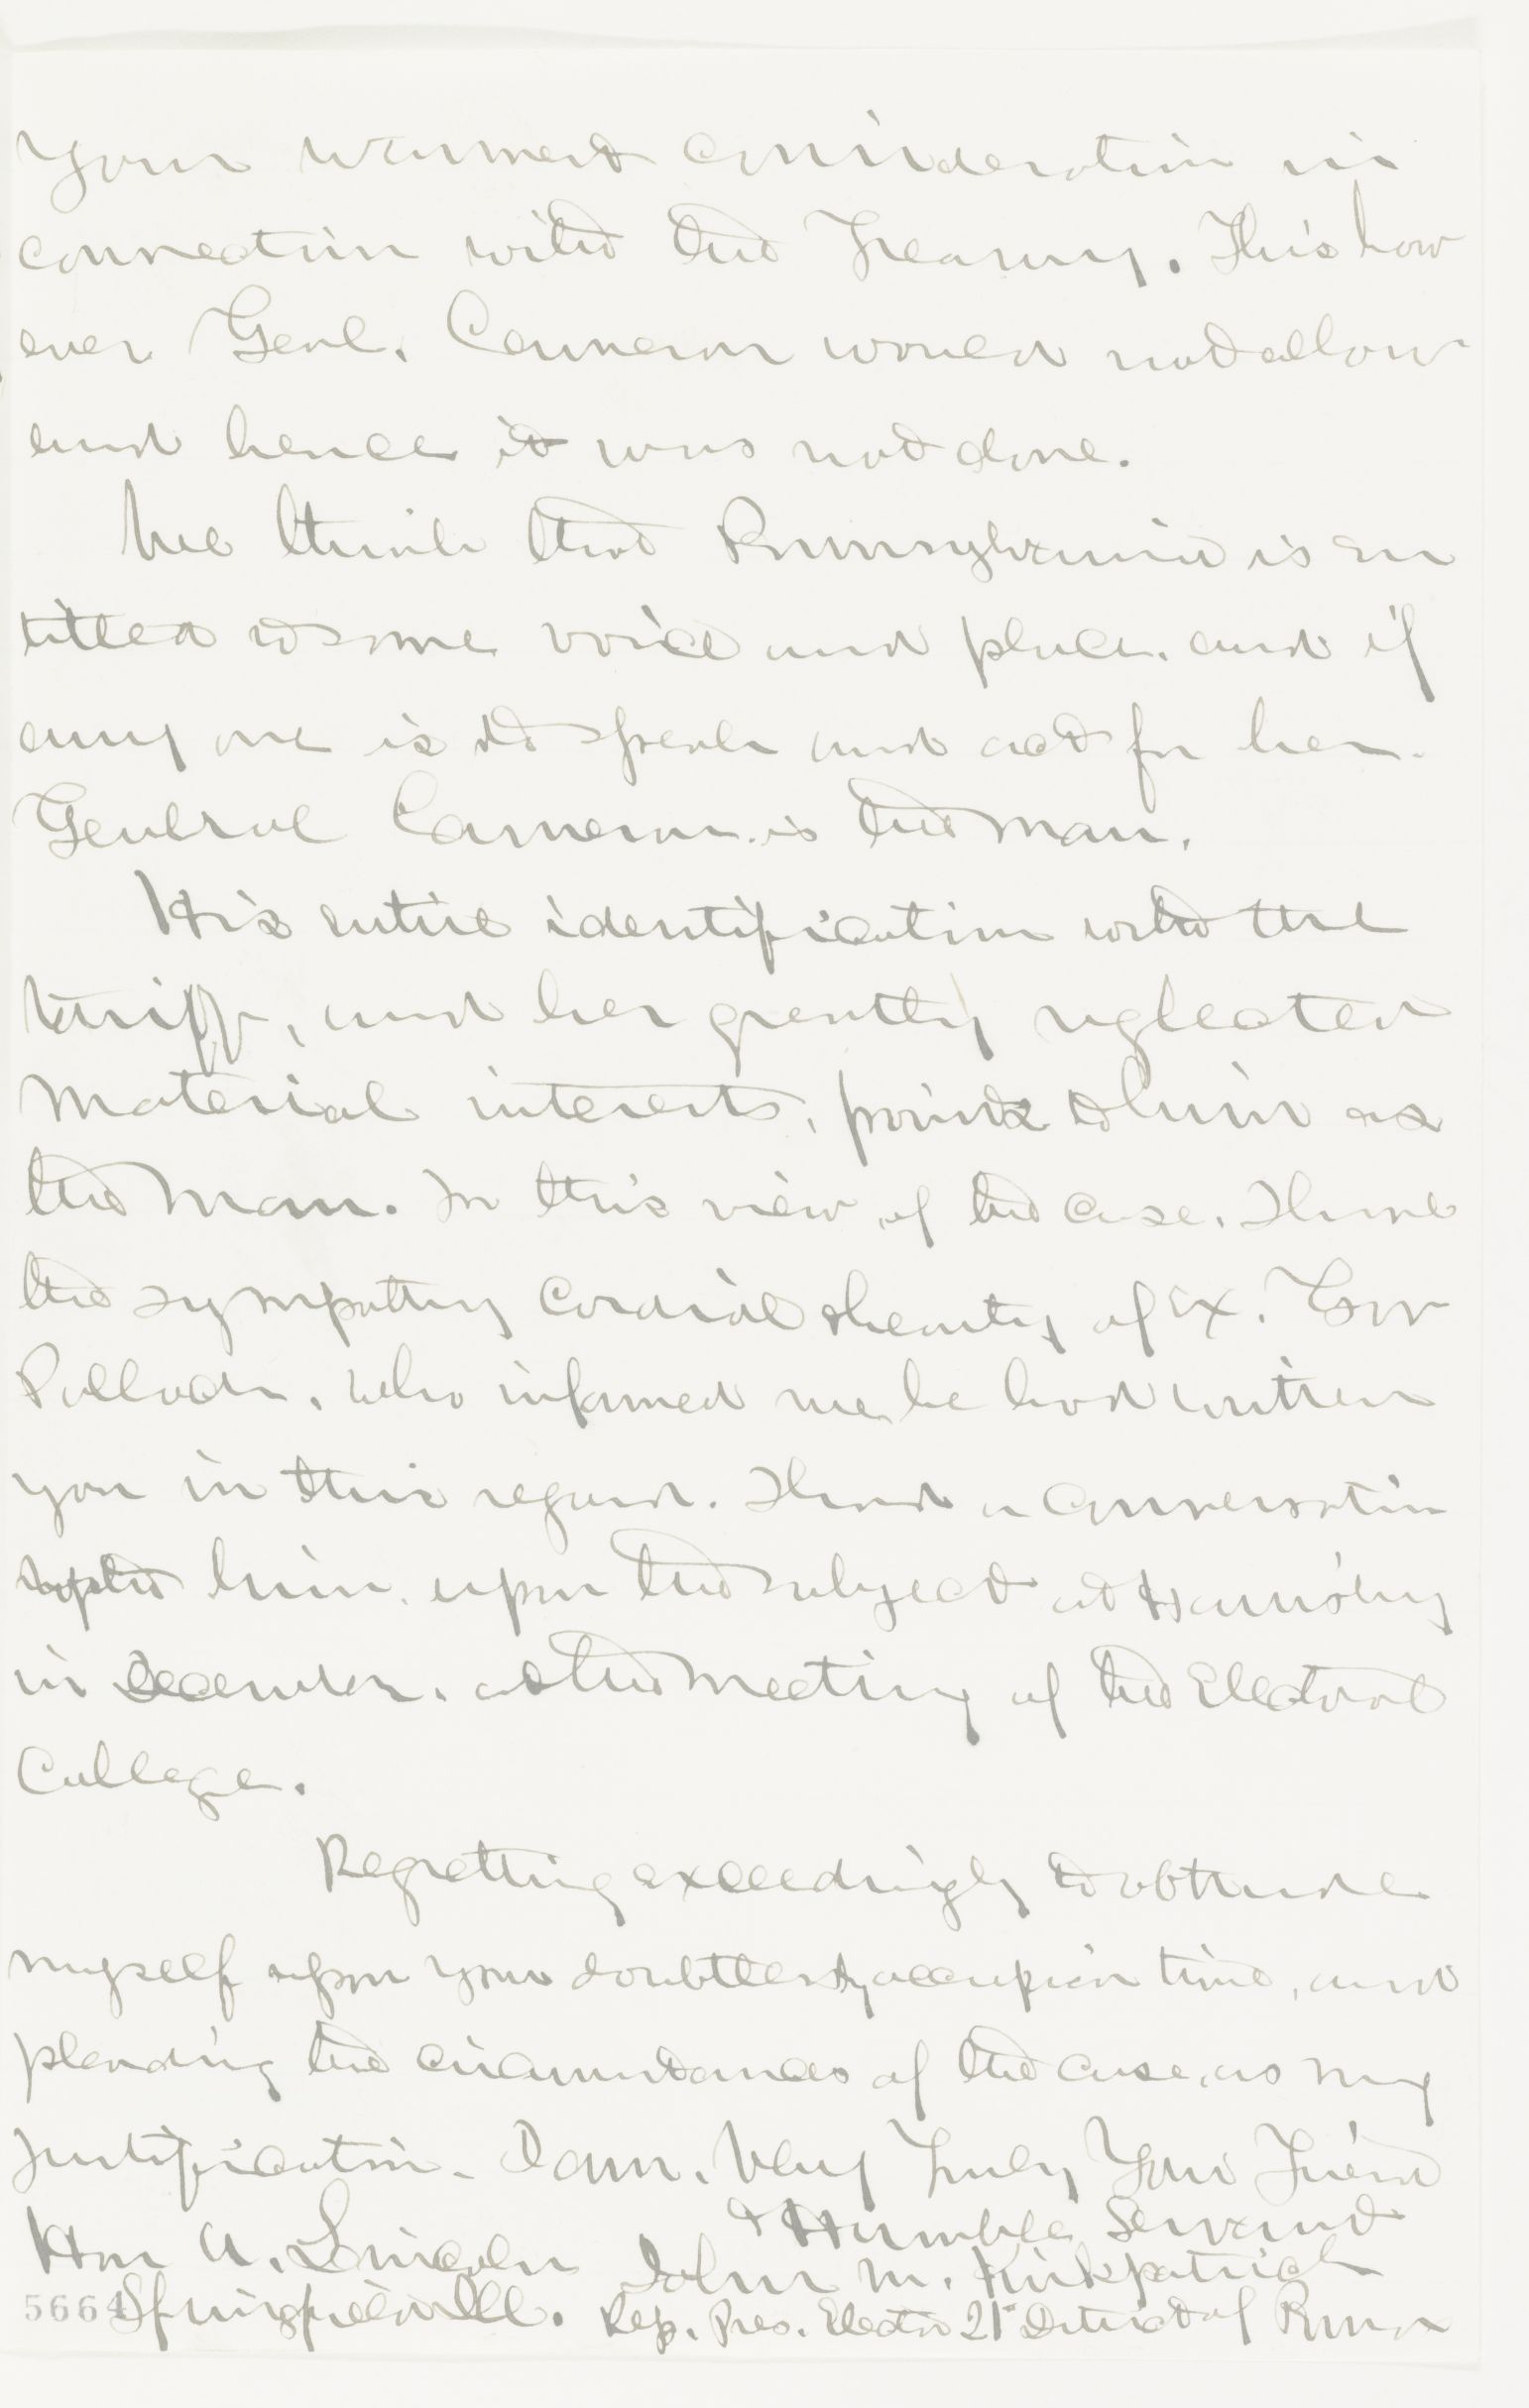 Your warmest consideration in
connection with the Treasury. This how
ever Genl. Cameron would not allow
and hence it was not done.
We think that Pennsylvania is en
titled to some voice and place, and if
any one is to speak and act for her.
General Cameron is the man.
His entire identification with the
tariff, and her greatly neglected
material interests, points to him as
the man. In this view of the case, I have
the sympathy cordial & hearty of Ex. Gov
Pollock, who informed me he had written
you in this regard. I had a conversation
with him, upon the subject at Harrisburg
in December, at the meeting of the Electoral
College.
Regretting exceedingly to obtrude
myself upon your doubtlessly occupied time, and
pleading the circumstances of the case, as my
justification. I am, Very Truly Your Friend
& Humble Servant
Hon A. Lincoln John M. Kirkpatrick
Springfield Ill. Rep. Pres. Elector 21st District of Penna
5664